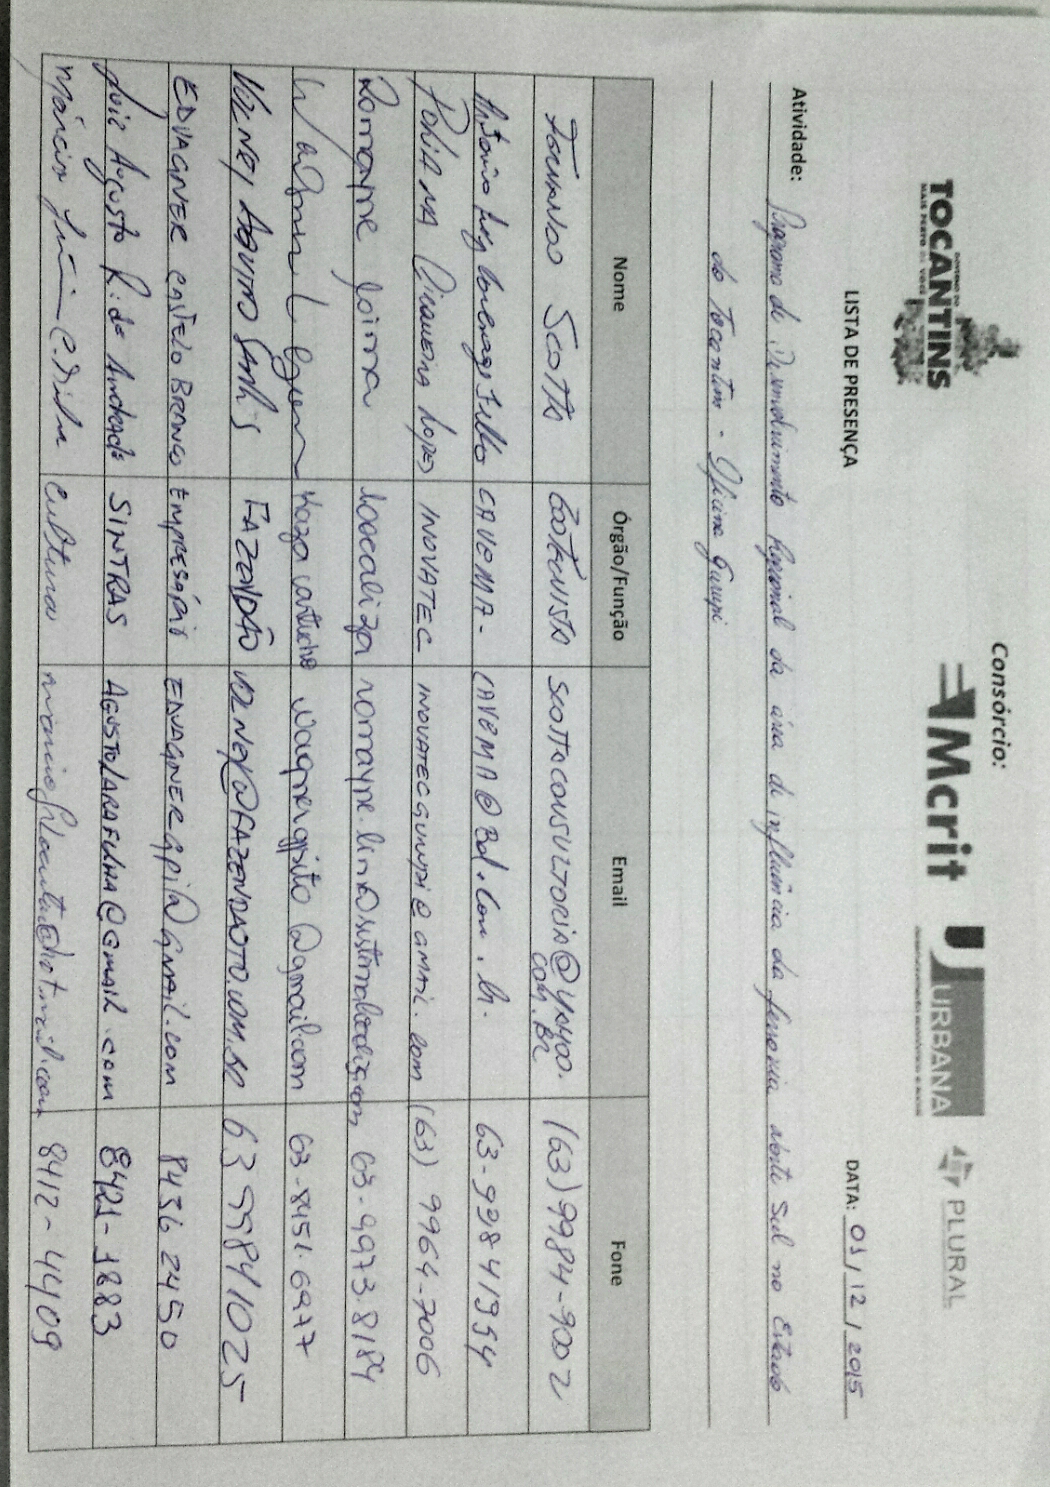 GOVERNO DO
TOCANTINS
MAIS PERTO DE VOCÊ
Consórcio:
Mcrit
URBANA
PLURAL
LISTA DE PRESENÇA
DATA: 01/12/2015
Atividade: Programa de Desenvolvimento Regional da área de influência da ferrovia norte Sul no Estado
do Tocantins - Oficina Gurupi
Nome Órgão/Função Email Fone
Fernando Scotta Zootecnista SCOTTACONSULTORIA@YAHOO.COM.BR (63) 9984-9002
Antonio Filho CAVEMA- CAVEMA@Bol.Com.br. 63-99841954
POLIANA LOPES INOVATEC INOVATECGURUPI@GMAIL.com (63) 9964-7006
Romayne Loima Localiza 63-9973.8184
Wagner wagnergpito@gmail.com 63-8451.6977
VOLNEY AQUINO FAZENDÃO VOLNEY@FAZENDAOTO.COM.BR 63 99841025
EDVAGNER CASTELO BRANCO EMPRESÁRIO EDVAGNERGPI@GMAIL.COM 8436 2450
Luiz Agusto R. de Andrade SINTRAS AGUSTO/ARAFUNA@Gmail.com 8421-1883
Márcio cultura 8412-4409